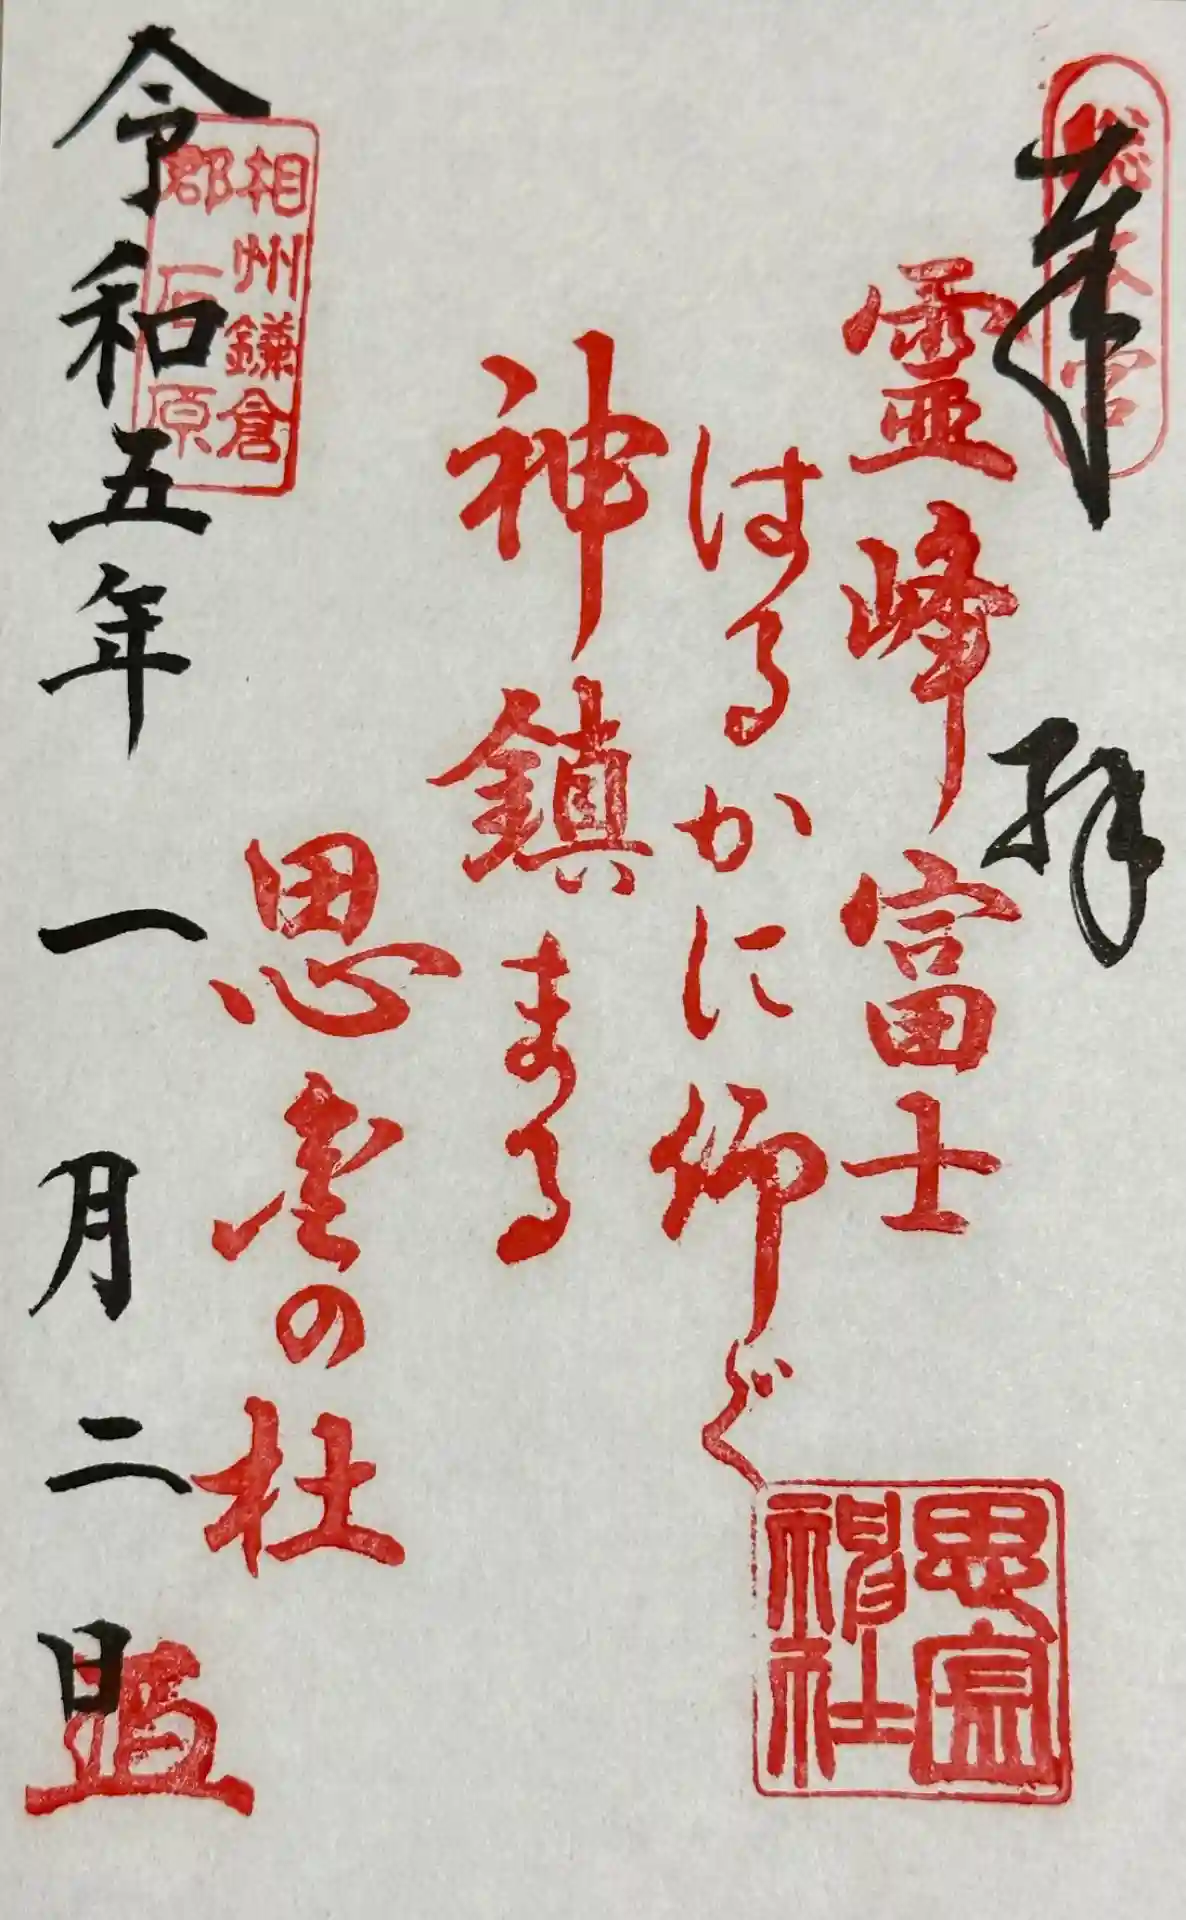 奉拝
総本宮
霊峰富士
はるかに仰ぐ
神鎮まる
思金の杜
思金神社
相州鎌倉
郡石原
令和五年一月二日